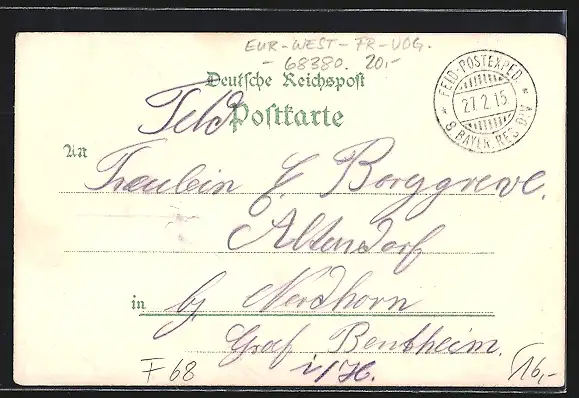 EUR-WEST-FR-VOG.
- 68380. 20,-
Deutsche Reichspost
Feld Postkarte
FELD-POSTEXPED
27.2.15
* 8. BAYER. RES. DIV *
An
Fräulein G Borggreve.
Altendorf
in by Nordhorn
Graf Bentheim.
i/H.
F 68
16,-